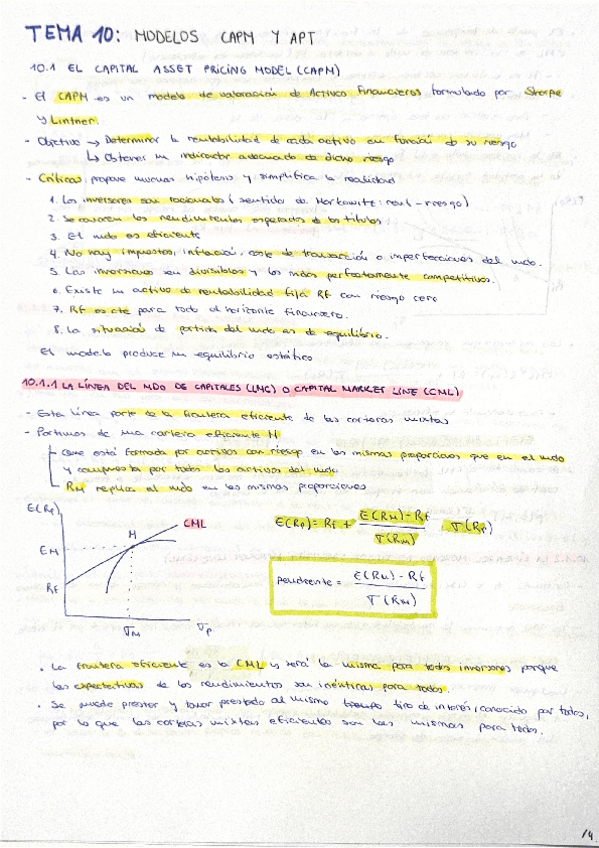 TEMA 10: MODELOS CAPM Y APT
10.1 EL CAPITAL ASSET PRICING MODEL (CAPM)
- El CAPM es un modelo de valoración de Activos Financieros formulado por Sharpe
y Lintner.
- Objetivo → Determinar la rentabilidad de cada activo en función de su riesgo
↳ Obtener un indicador adecuado de dicho riesgo
- Críticas: propone muchas hipótesis y simplifica la realidad
1. Los inversores son racionales (sentido de Markowitz: rent - riesgo)
2. Se conocen los rendimientos esperados de los títulos
3. El mdo es eficiente
4. No hay impuestos, inflación, coste de transacción o imperfecciones del mdo.
5. Las inversiones son divisibles y los mdos perfectamente competitivos.
6. Existe un activo de rentabilidad fija RF con riesgo cero
7. RF es cte para todo el horizonte financiero.
8. La situación de partida del mdo es de equilibrio.
El modelo produce un equilibrio estático
10.1.1 LA LÍNEA DEL MDO DE CAPITALES (LMC) O CAPITAL MARKET LINE (CML)
- Esta línea parte de la frontera eficiente de las carteras mixtas
- Partimos de una cartera eficiente M
- Que está formada por activos con riesgo en las mismas proporciones que en el mdo
y compuesta por todos los activos del mdo.
- RM replica al mdo en las mismas proporciones
E(Rp)
CML
M
EM
RF
σM
σp
E(Rp) = Rf + E(RM) - Rf / σ(RM) · σ(Rp)
pendiente = E(RM) - Rf / σ(RM)
• La frontera eficiente es la CML y será la misma para todos inversores porque
las expectativas de los rendimientos son idénticas para todos.
• Se puede prestar y tomar prestado al mismo tiempo tipo de interés, conocido por todos,
por lo que las carteras mixtas eficientes son las mismas para todos.